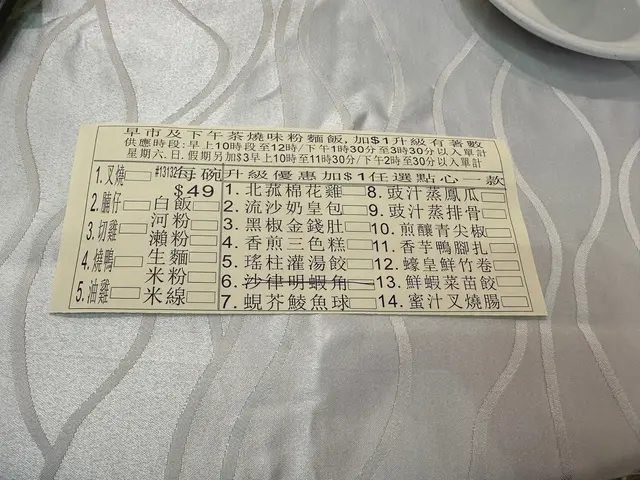 早市及下午茶燒味粉麵飯,加$1升級有著數
供應時段:早上10時段至12時/下午1時30分至3時30分以入單計
星期六.日,假期另加$3早上10時至11時30分/下午2時30分以入單計
#13132 每碗 $49
1.叉燒
2.腩仔
3.切雞
4.燒鴨
5.油雞
白飯
河粉
瀨粉
生麵
米粉
米線
升級優惠加$1任選點心一款
1.北菰棉花雞
2.流沙奶皇包
3.黑椒金錢肚
4.香煎三色糕
5.瑤柱灌湯餃
6.沙律明蝦角
7.蜆芥鯪魚球
8.豉汁蒸鳳瓜
9.豉汁蒸排骨
10.煎釀青尖椒
11.香芋鴨腳扎
12.蠔皇鮮竹卷
13.鮮蝦菜苗餃
14.蜜汁叉燒腸